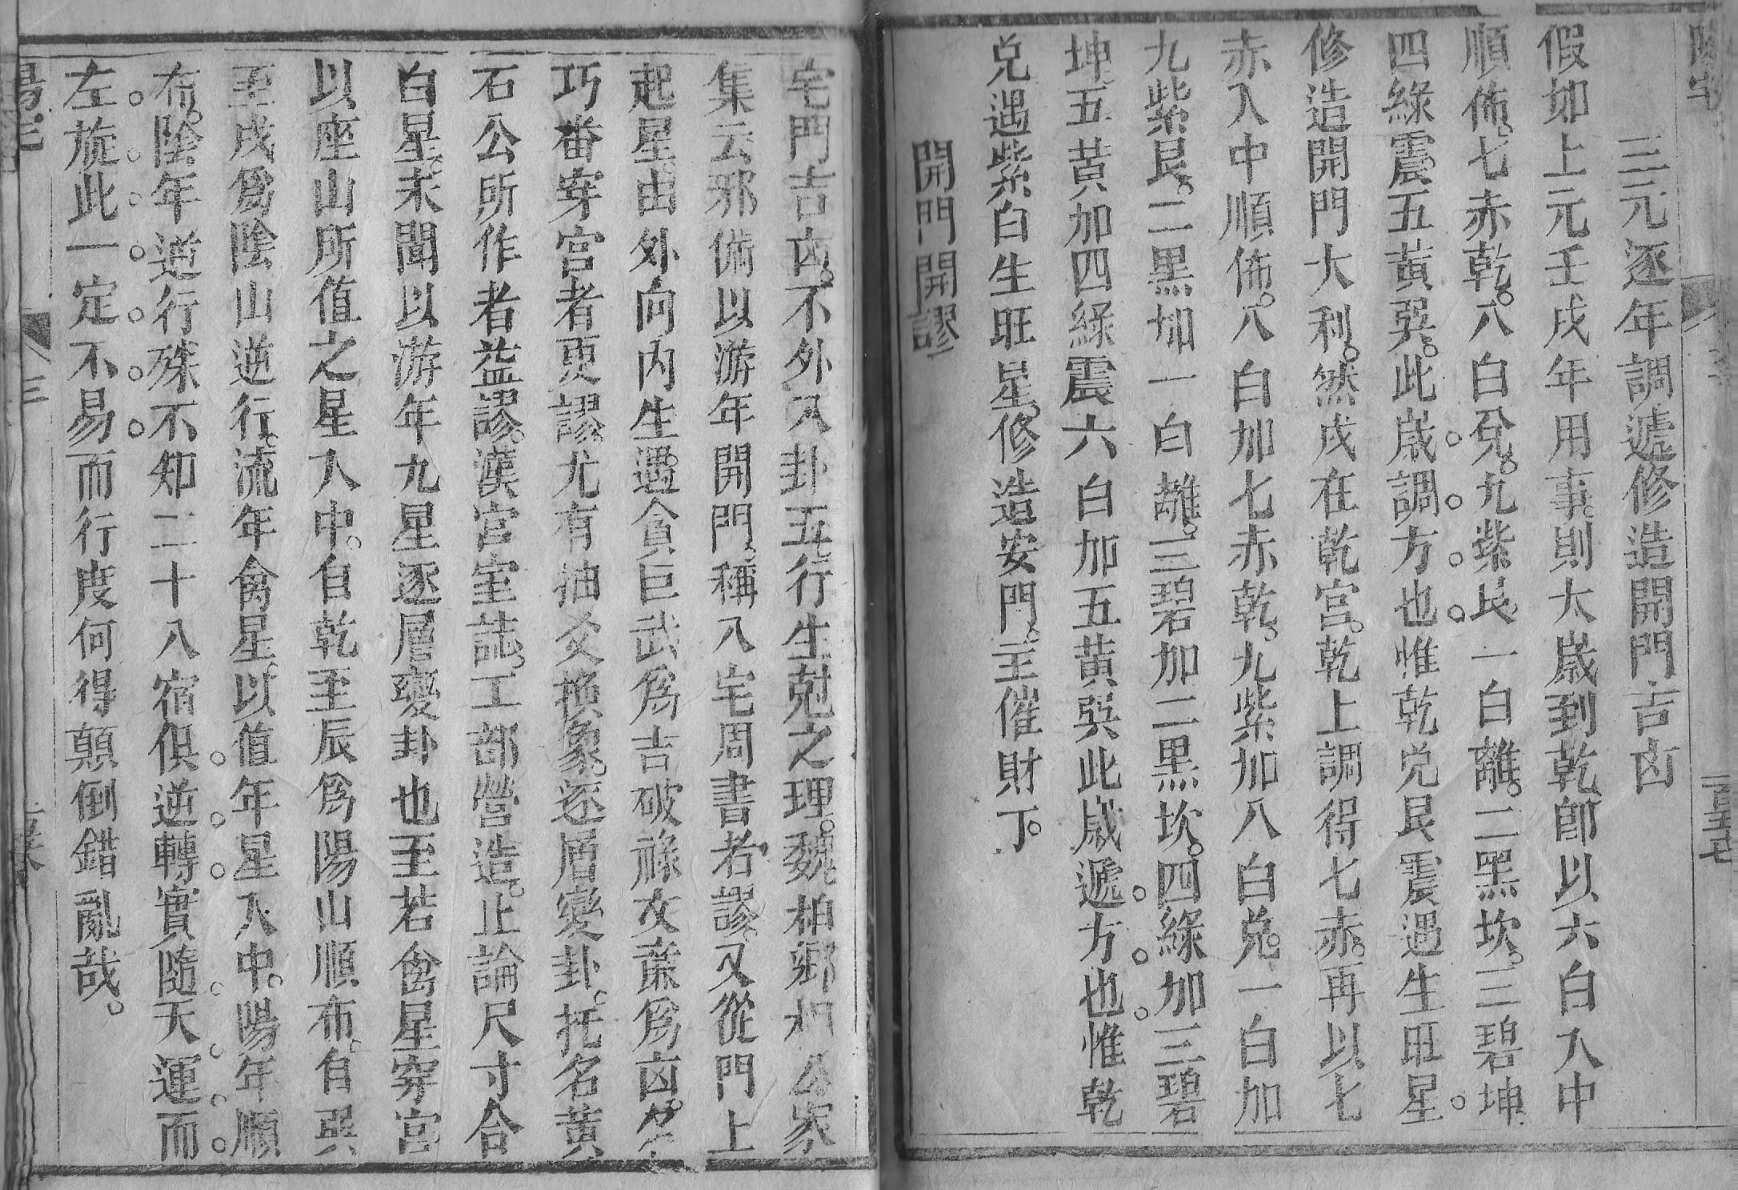 三元逐年調遞修造開門吉凶
假如上元壬戌年用事則太歲到乾卽以六白入中
順佈七赤乾八白兌九紫艮一白離二黑坎三碧坤
四綠震五黃巽此歲調方也惟乾兌艮震遇生旺星
修造開門大利然戌在乾宮乾上調得七赤再以七
赤入中順佈八白加七赤乾九紫加八白兌一白加
九紫艮二黑加一白離三碧加二黑坎四綠加三碧
坤五黃加四綠震六白加五黃巽此歲遞方也惟乾
兌遇紫白生旺星修造安門主催財丁
開門開謬
宅門吉凶不外八卦五行生尅之理魏柏鄉相公家
集云邪術以游年開門稱八宅周書者謬又從門上
起星由外向內生遇貪巨武爲吉破祿文廉爲凶
巧番穿宮者更謬尤有抽爻換象逐層變卦托名黃
石公所作者益謬漢宮室誌工部營造止論尺寸合
白星未聞以游年九星逐層變卦也至若禽星穿宮
以座山所值之星入中自乾至辰爲陽山順布自巽
至戌爲陰山逆行流年禽星以值年星入中陽年順
布陰年逆行殊不知二十八宿俱逆轉實隨天運而
左旋此一定不易而行度何得顛倒錯亂哉
三